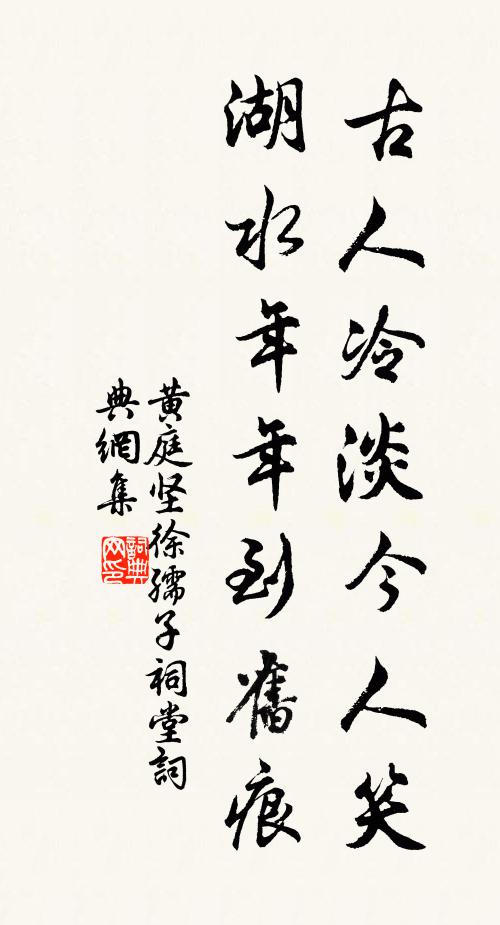 古人冷淡今人笑
湖水年年到舊痕
黄庭坚徐孺子祠堂詞
典網集
詞典
网印